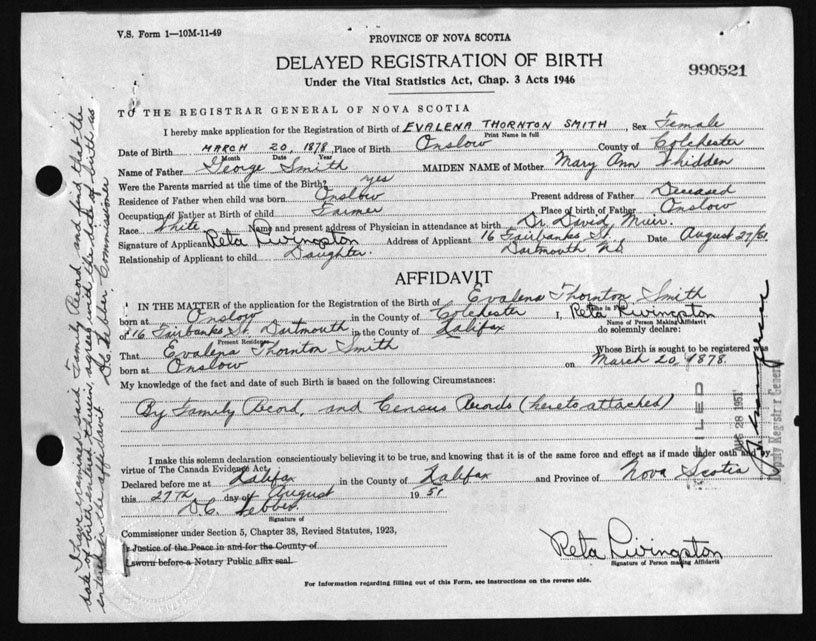 V.S. Form 1—10M-11-49
PROVINCE OF NOVA SCOTIA
DELAYED REGISTRATION OF BIRTH
990521
Under the Vital Statistics Act, Chap. 3 Acts 1946
TO THE REGISTRAR GENERAL OF NOVA SCOTIA
I hereby make application for the Registration of Birth of EVALENA THORNTON SMITH, Sex Female
Print Name in full
Date of Birth MARCH 20, 1878 Place of Birth Onslow County of Colchester
Month Date Year
Name of Father George Smith MAIDEN NAME of Mother Mary Ann Whidden
Were the Parents married at the time of the Birth? yes
Residence of Father when child was born Onslow Present address of Father Deceased
Occupation of Father at Birth of child Farmer Place of birth of Father Onslow
Race White Name and present address of Physician in attendance at birth Dr David Muir.
Signature of Applicant Reta Rivingston Address of Applicant 16 Fairbanks St. Date August 27/51.
Relationship of Applicant to child Daughter. Dartmouth N.S.
AFFIDAVIT
IN THE MATTER of the application for the Registration of Birth of Evalena Thornton Smith
born at Onslow in the County of Colchester I, Reta Rivingston
Name of Person Making Affidavit
of 16 Fairbanks St. Dartmouth in the County of Halifax do solemnly declare:
Present Residence
That Evalena Thornton Smith Whose Birth is sought to be registered was
born at Onslow on March 20, 1878.
My knowledge of the fact and date of such Birth is based on the following Circumstances:
By Family Record, and Census Records (hereto attached)
I make this solemn declaration conscientiously believing it to be true, and knowing that it is of the same force and effect as if made under oath and by
virtue of The Canada Evidence Act.
Declared before me at Halifax in the County of Halifax and Province of Nova Scotia
this 27TH day of August 1951
Signature of
Commissioner under Section 5, Chapter 38, Revised Statutes, 1923,
or Justice of the Peace in and for the County of
If sworn before a Notary Public affix seal.
Reta Rivingston
Signature of Person making Affidavit
For information regarding filling out of this Form, see instructions on the reverse side.
I have examined said Family Record, and find that the
date of birth entered therein, agrees with the date of birth as
entered in the affidavit. Commissioner
FILED
AUG 28 1951
Deputy Registrar General